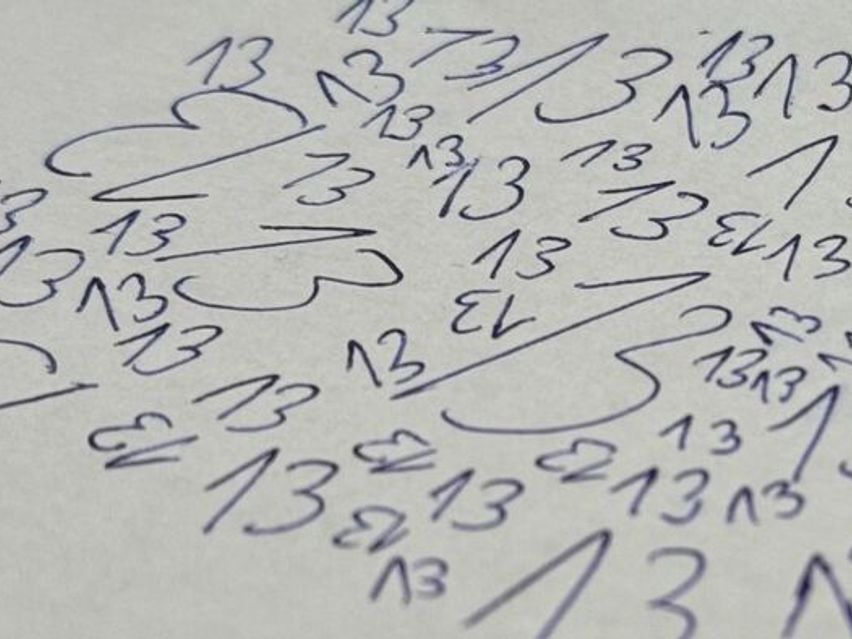 13
13 13 13 13 13
13 13 13
13 13 13
13 13 13 13
13 13 13 13
13 13 13
13 13 13
13 13 13 13
13 13 13
13 13 13 13
13 13 13 13
13 13
13